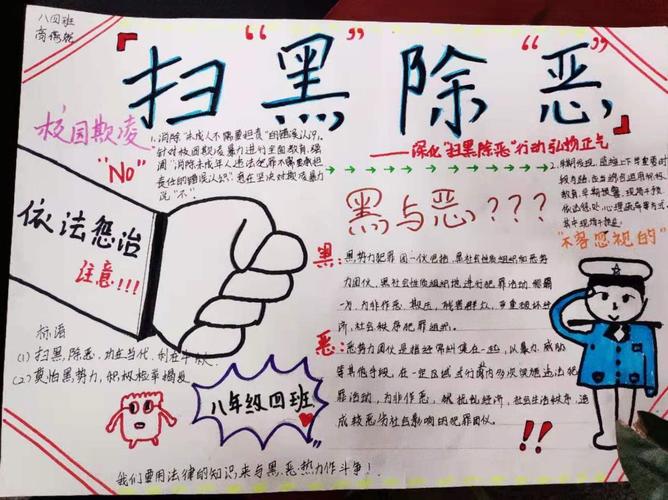 八四班
扫“黑”除“恶”
——深化“扫黑除恶”行动 弘扬正气
校园欺凌
“No”
1、消除“未成人不需要担责”的错误认识,
针对校园欺凌暴力进行全面教育,强
调“消除未成年人违法犯罪不需要承担
责任的错误认识”,意在坚决对欺凌暴力
说“不”.
依法惩治
注意!!!
黑与恶???
“不容忽视的”
黑:黑势力犯罪团伙
力团伙,黑社会性质组织进行犯罪活动,
为非作恶,欺压,残害群众,严重破坏经
济,社会秩序犯罪组织.
恶:恶势力团伙是指经常纠集在一起,以暴力,威胁
等其他手段,在一定区域
罪活动,为非作恶,扰乱经济,社会生活秩序,造
成较恶劣社会影响的犯罪团伙
标语
(1)扫黑,除恶,功在当代,利在千秋.
(2)莫怕黑势力,积极检举揭发
八年级四班
!!
我们要用法律的知识,来与黑.恶.热力作斗争!